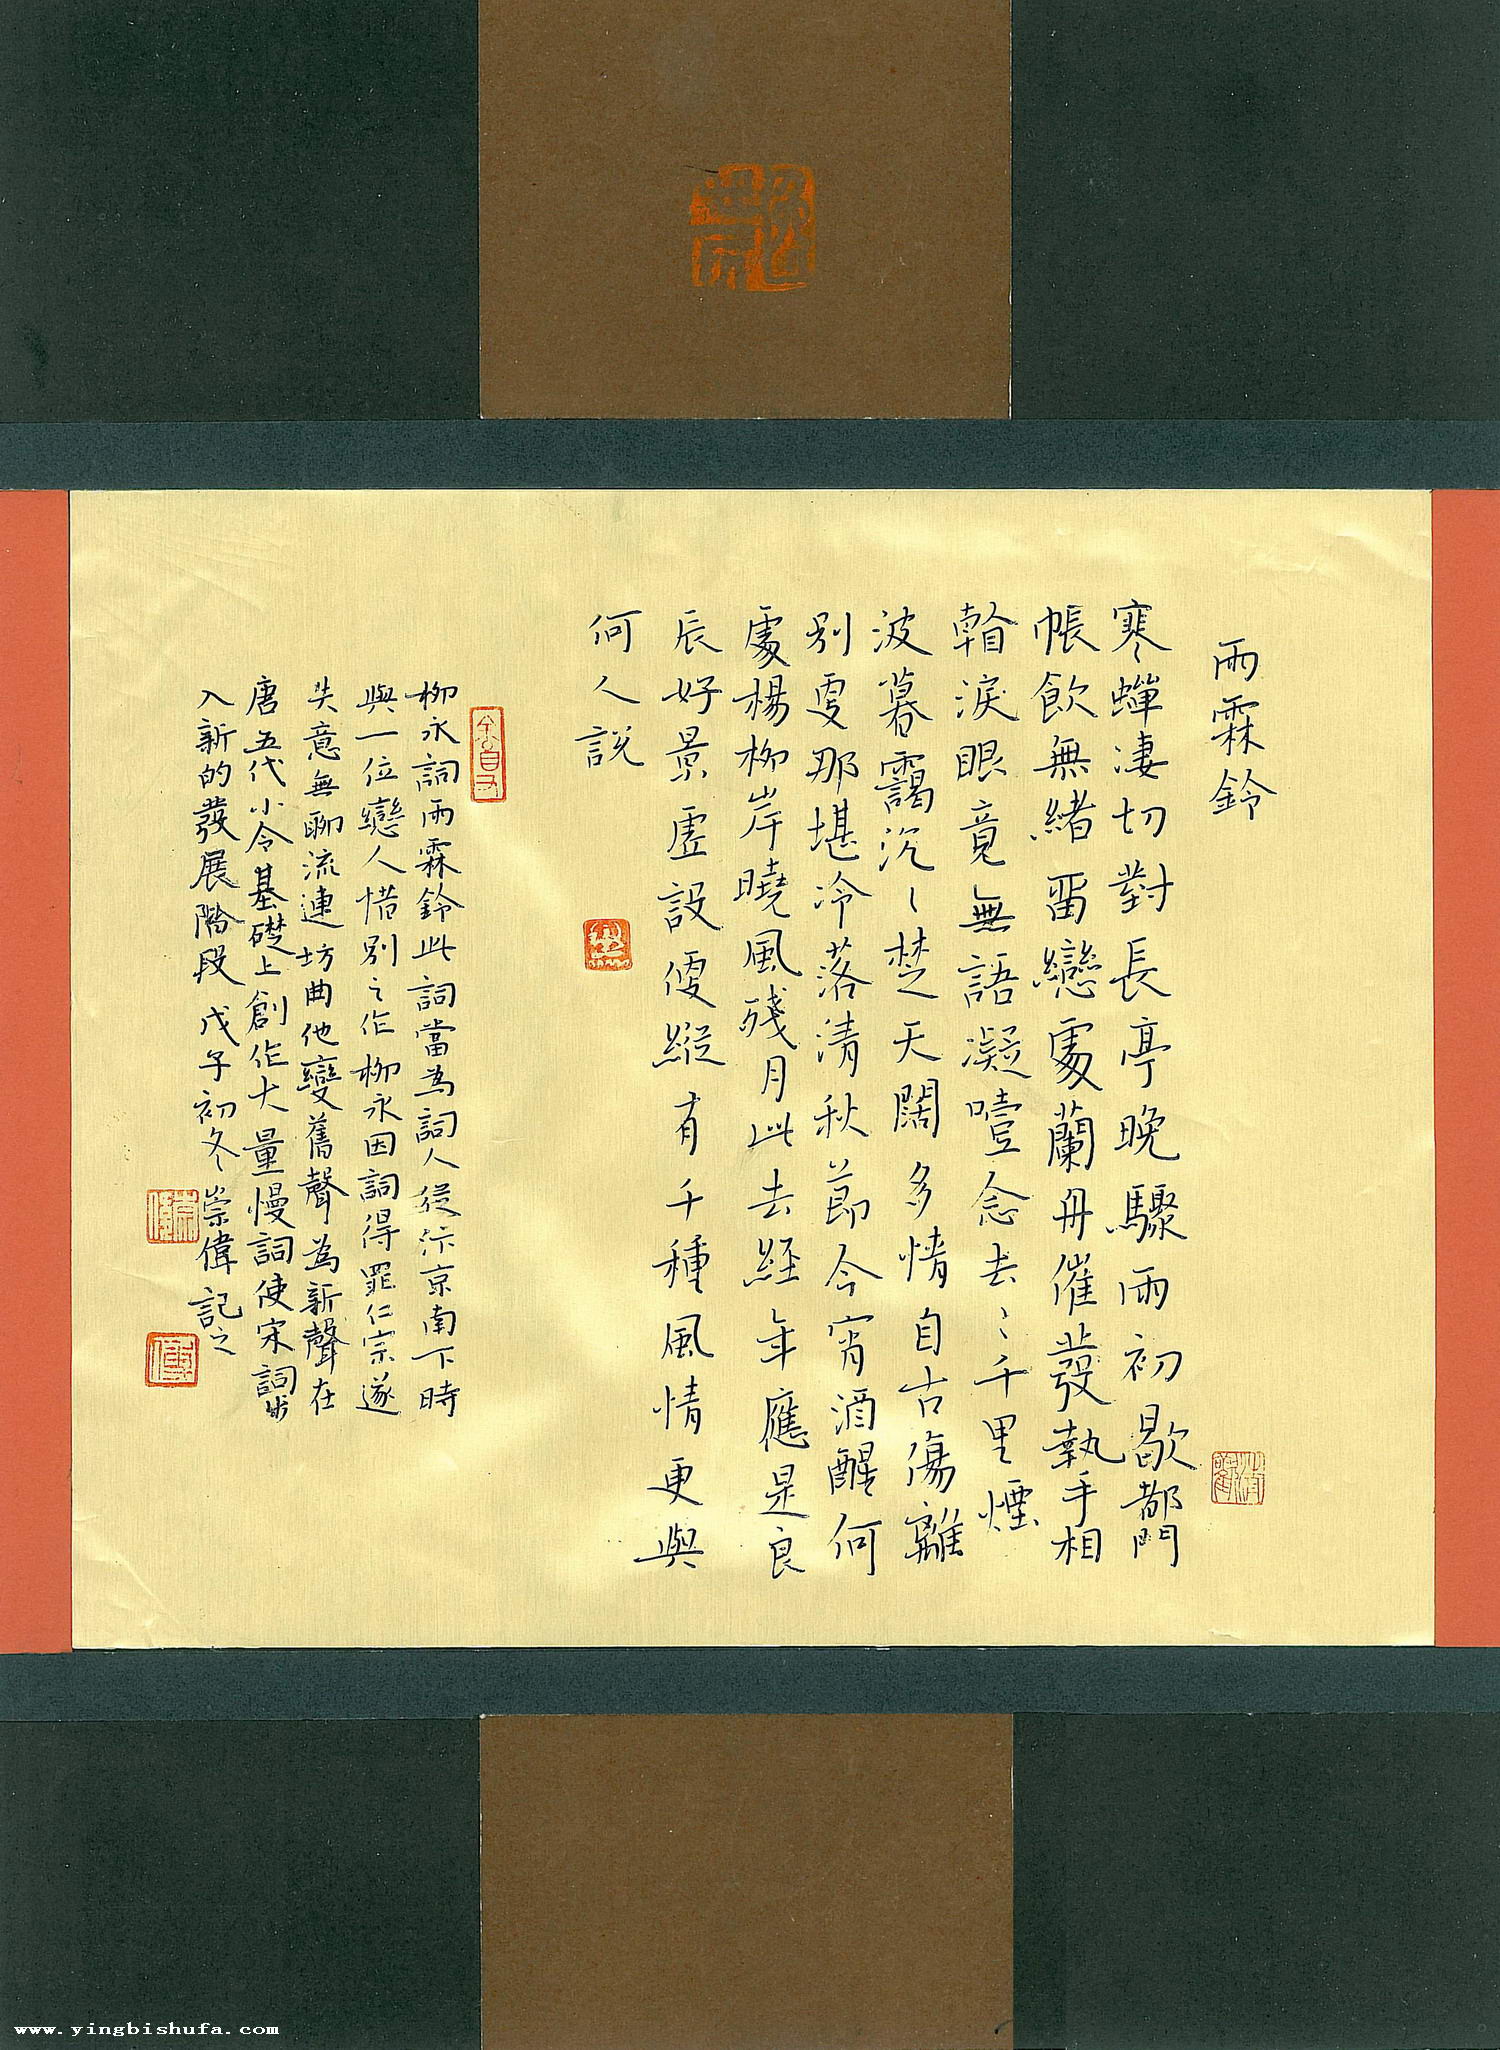 雨霖鈴
寒蟬淒切對長亭晚驟雨初歇都門
帳飲無緒留戀處蘭舟催發執手相
看淚眼竟無語凝噎念去〻千里煙
波暮靄沉〻楚天闊多情自古傷離
别更那堪冷落清秋節今宵酒醒何
處楊柳岸曉風殘月此去経年應是良
辰好景虛設便縱有千種風情更與
何人説
柳永詞雨霖鈴此詞當為詞人從汴京南下時
與一位戀人惜别之作柳永因詞得罪仁宗遂
失意無聊流連坊曲他變舊聲為新聲在
唐五代小令基礎上創作大量慢詞使宋詞步
入新的發展階段戊子初冬崇偉記之
www.yingbishufa.com